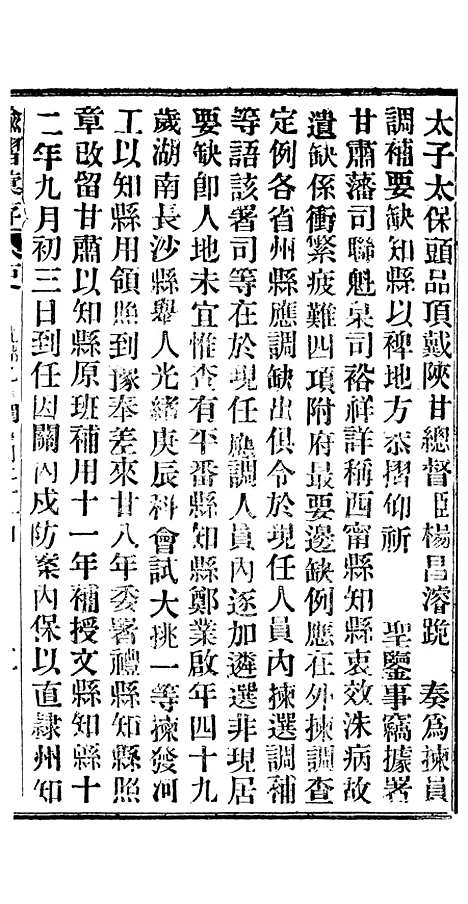 太子太保頭品頂戴陝甘總督臣楊昌濬跪　奏爲揀員
調補要缺知縣以裨地方恭摺仰祈　　聖鑒事竊據署
甘肅藩司聯魁臬司裕祥詳稱西甯縣知縣衷效洙病故
遺缺係衝繁疲難四項附府最要邊缺例應在外揀調查
定例各省州縣應調缺出俱令於現任人員內揀選調補
等語該署司等在於現任應調人員內逐加遴選非現居
要缺卽人地未宜惟查有平番縣知縣鄭業啟年四十九
歲湖南長沙縣舉人光緒庚辰科會試大挑一等揀發河
工以知縣用領照到豫奉差來甘八年委署禮縣知縣照
章改留甘肅以知縣原班補用十一年補授文縣知縣十
二年九月初三日到任因關內戍防案內保以直隸州知
諭摺彙存